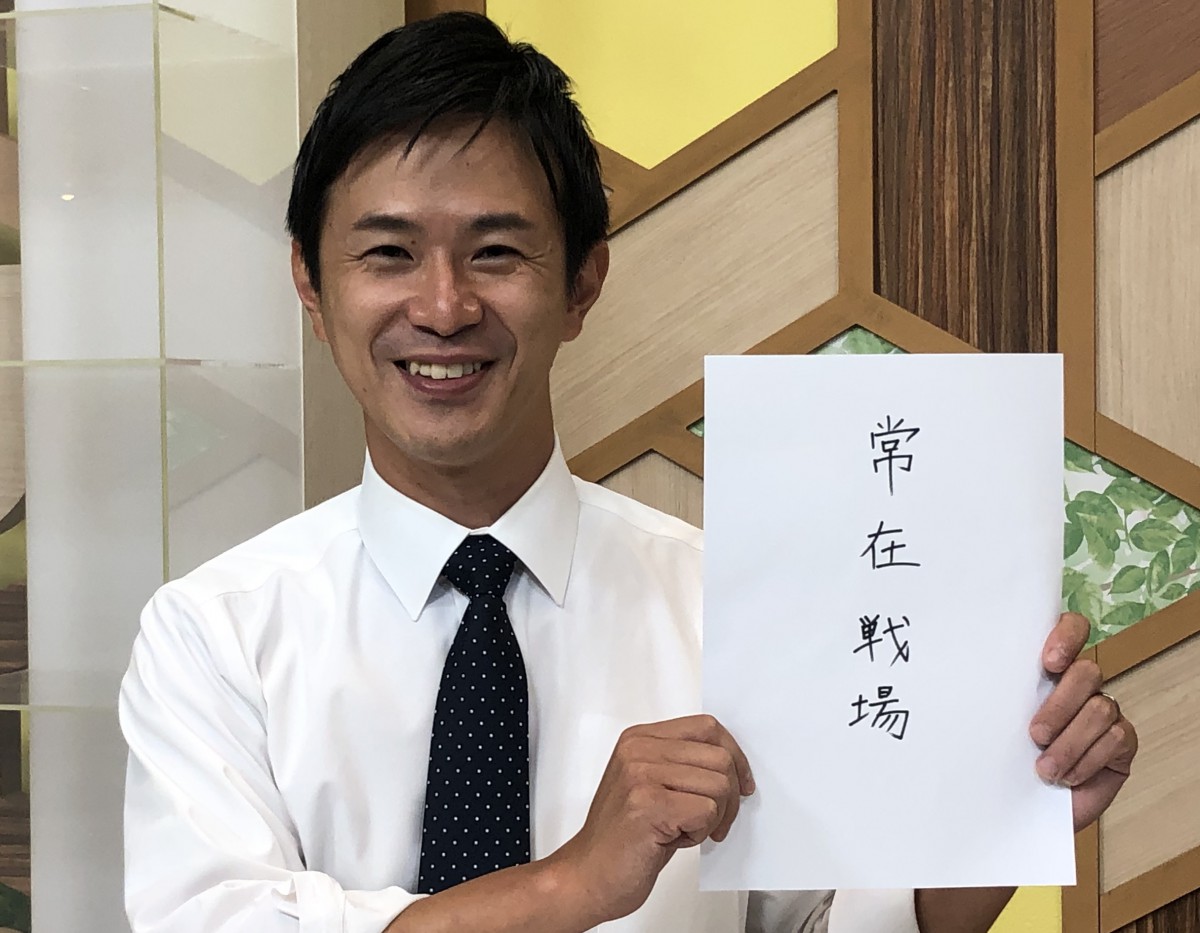 常在戦場